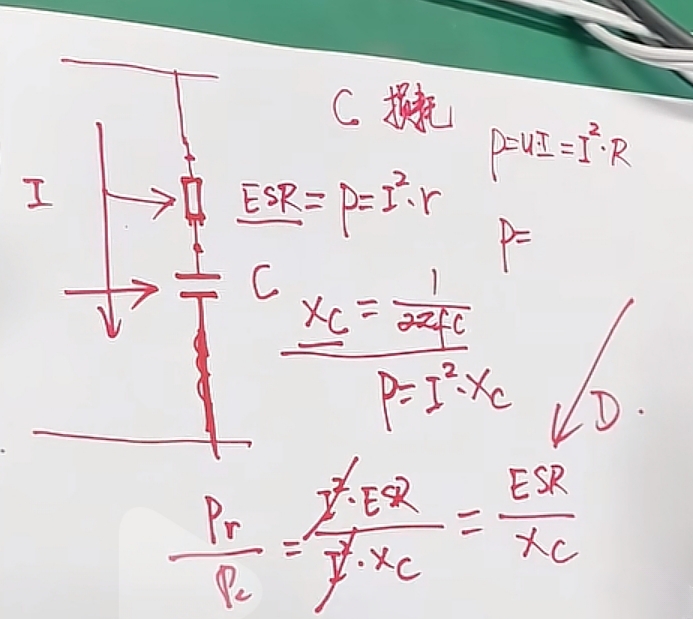 C 损耗
P=UI=I²·R
I
ESR=P=I²·r
P=
C
Xc=1/2πfC
P=I²·Xc
D.
Pr/Pc=I²·ESR/I²·Xc=ESR/Xc